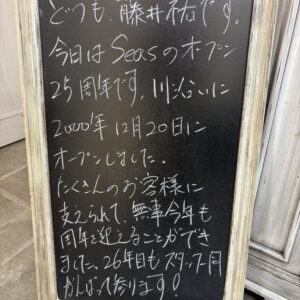 どうも、藤井祐です。
今日は Seasのオープン
25周年です。川沿いに
2000年12月20日に
オープンしました。
たくさんのお客様に
支えられて、無事今年も
周年を迎えることができ
ました、26年目もスタッフ一同
がんばって参ります!